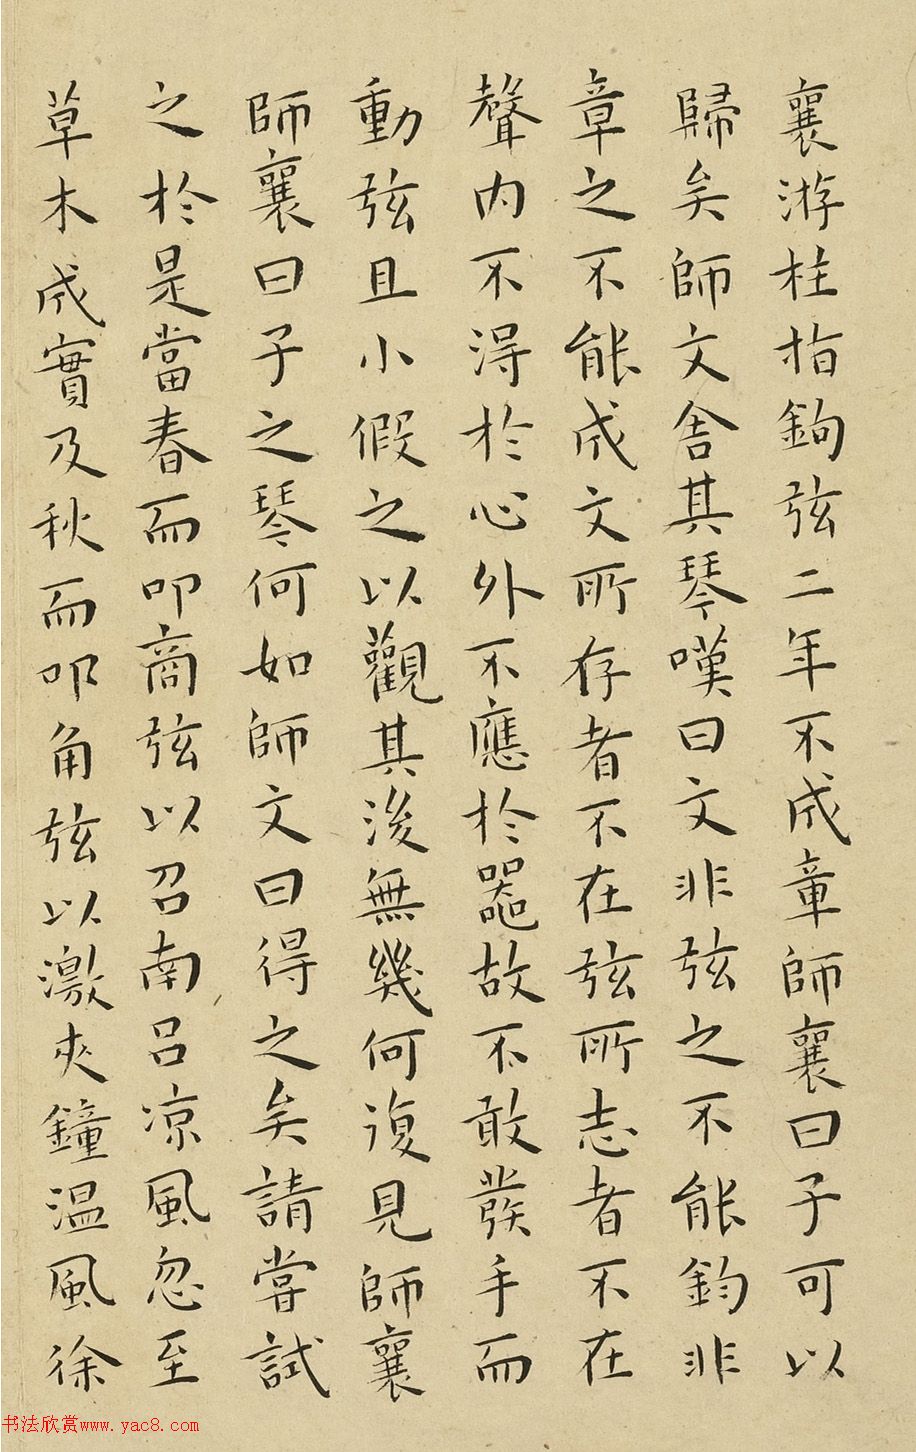 襄游柱指鉤弦二年不成章師襄曰子可以
歸矣師文舍其琴嘆曰文非弦之不能鈞非
章之不能成文所存者不在弦所志者不在
聲内不得於心外不應於器故不敢發手而
動弦且小假之以觀其後無幾何復見師襄
師襄曰子之琴何如師文曰得之矣請嘗試
之於是當春而叩商弦以召南呂涼風忽至
草木成實及秋而叩角弦以激夾鐘温風徐
书法欣赏www.yac8.com